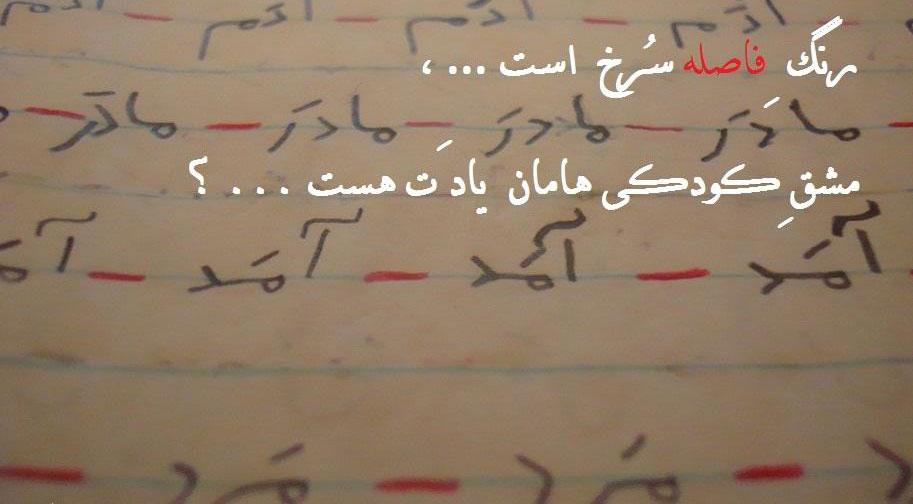 آدَم – آدَم – آدَم –
رنگ فاصله سُرخ است ... ،
– مادَر – مادَر – مادَر – مادَر –
مشقِ کودکی هامان یادَت هست . . . ؟
آمَد – آمَد – آمَد – آ
– مَرد – مَرد –